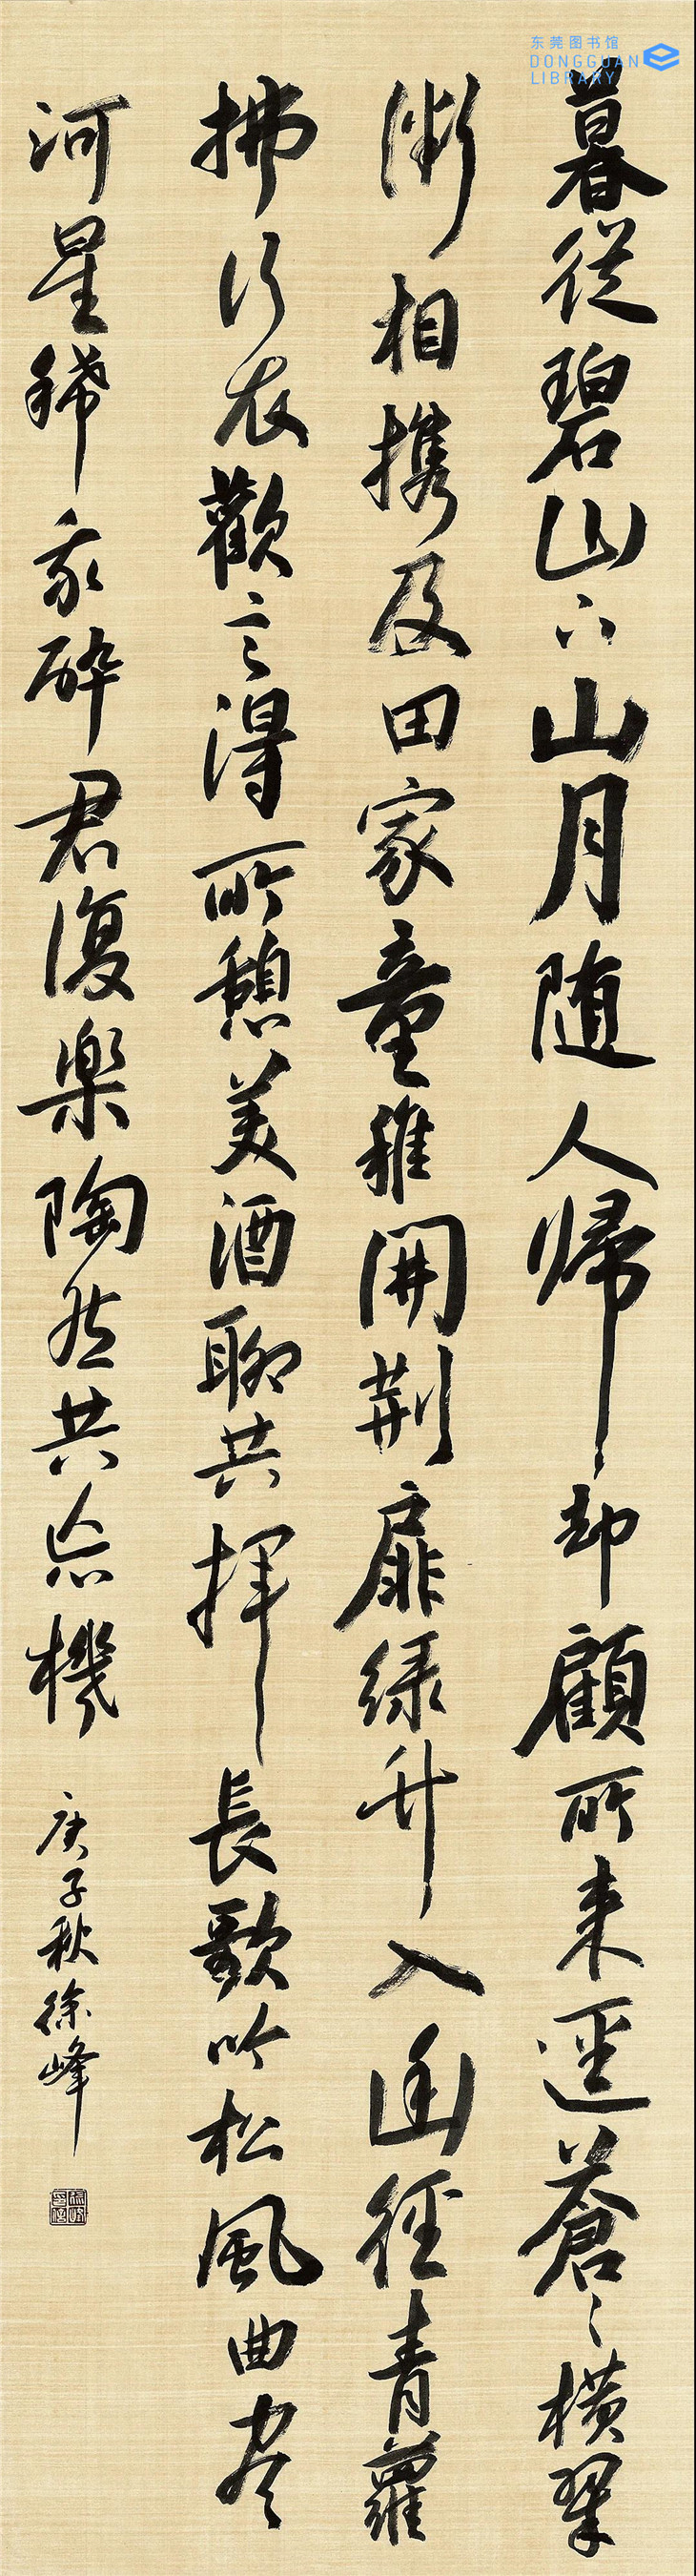 东莞图书馆
DONGGUAN
LIBRARY
暮從碧山下山月随人帰却顧所来逕蒼〻横翠
微相携及田家童稚開荊扉緑竹入幽徑青蘿
拂行衣歡言得所憩美酒聊共揮長歌吟松風曲尽
河星稀我醉君復楽陶然共忘機
庚子秋徐峰